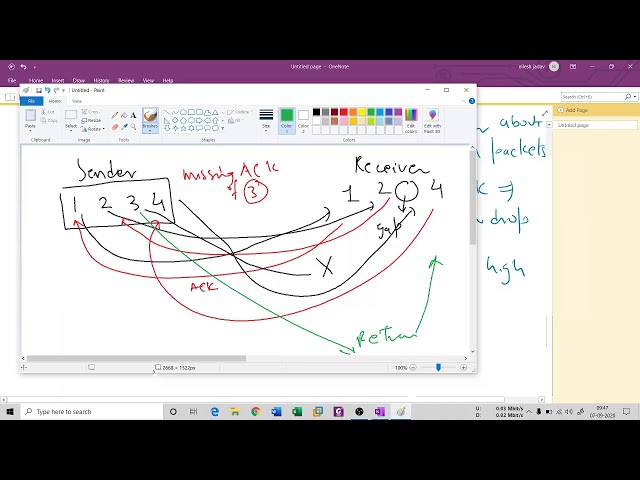 Untitled page - OneNote
nilesh jadav
Untitled - Paint
File Home View
Paste
Cut
Copy
Select
Crop
Resize
Rotate
Brushes
Outline
Fill
Size
Color 1
Color 2
Edit colors
Edit with Paint 3D
Clipboard Image Tools Shapes Colors
Search
Add Page
Untitled page
Sender
missing Ack of 3
Receiver
1 2 3 4
1 2 4
gap
X
ACK
Return
about
packets
k ⇒
drop
high
2668 × 1522px
100%
Type here to search
U: 0.03 Mbit/s
D: 0.02 Mbit/s
09:47
07-09-2020